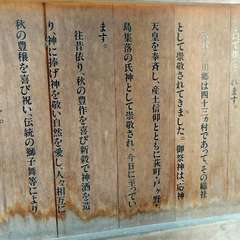 川郷は四十三ヵ村であって、その総社
として崇敬されてきました。御祭神は、応神
天皇を奉斉し、産土信仰とともに荻町、戸ヶ野・
島集落の氏神として崇敬され、今日に至ってい
ます。
往昔依り、秋の豊作を喜び新穀で神酒を造
り、神に捧げ神を敬い自然を愛し、人々相互に
秋の豊穣を喜び祝い、伝統の獅子舞等により